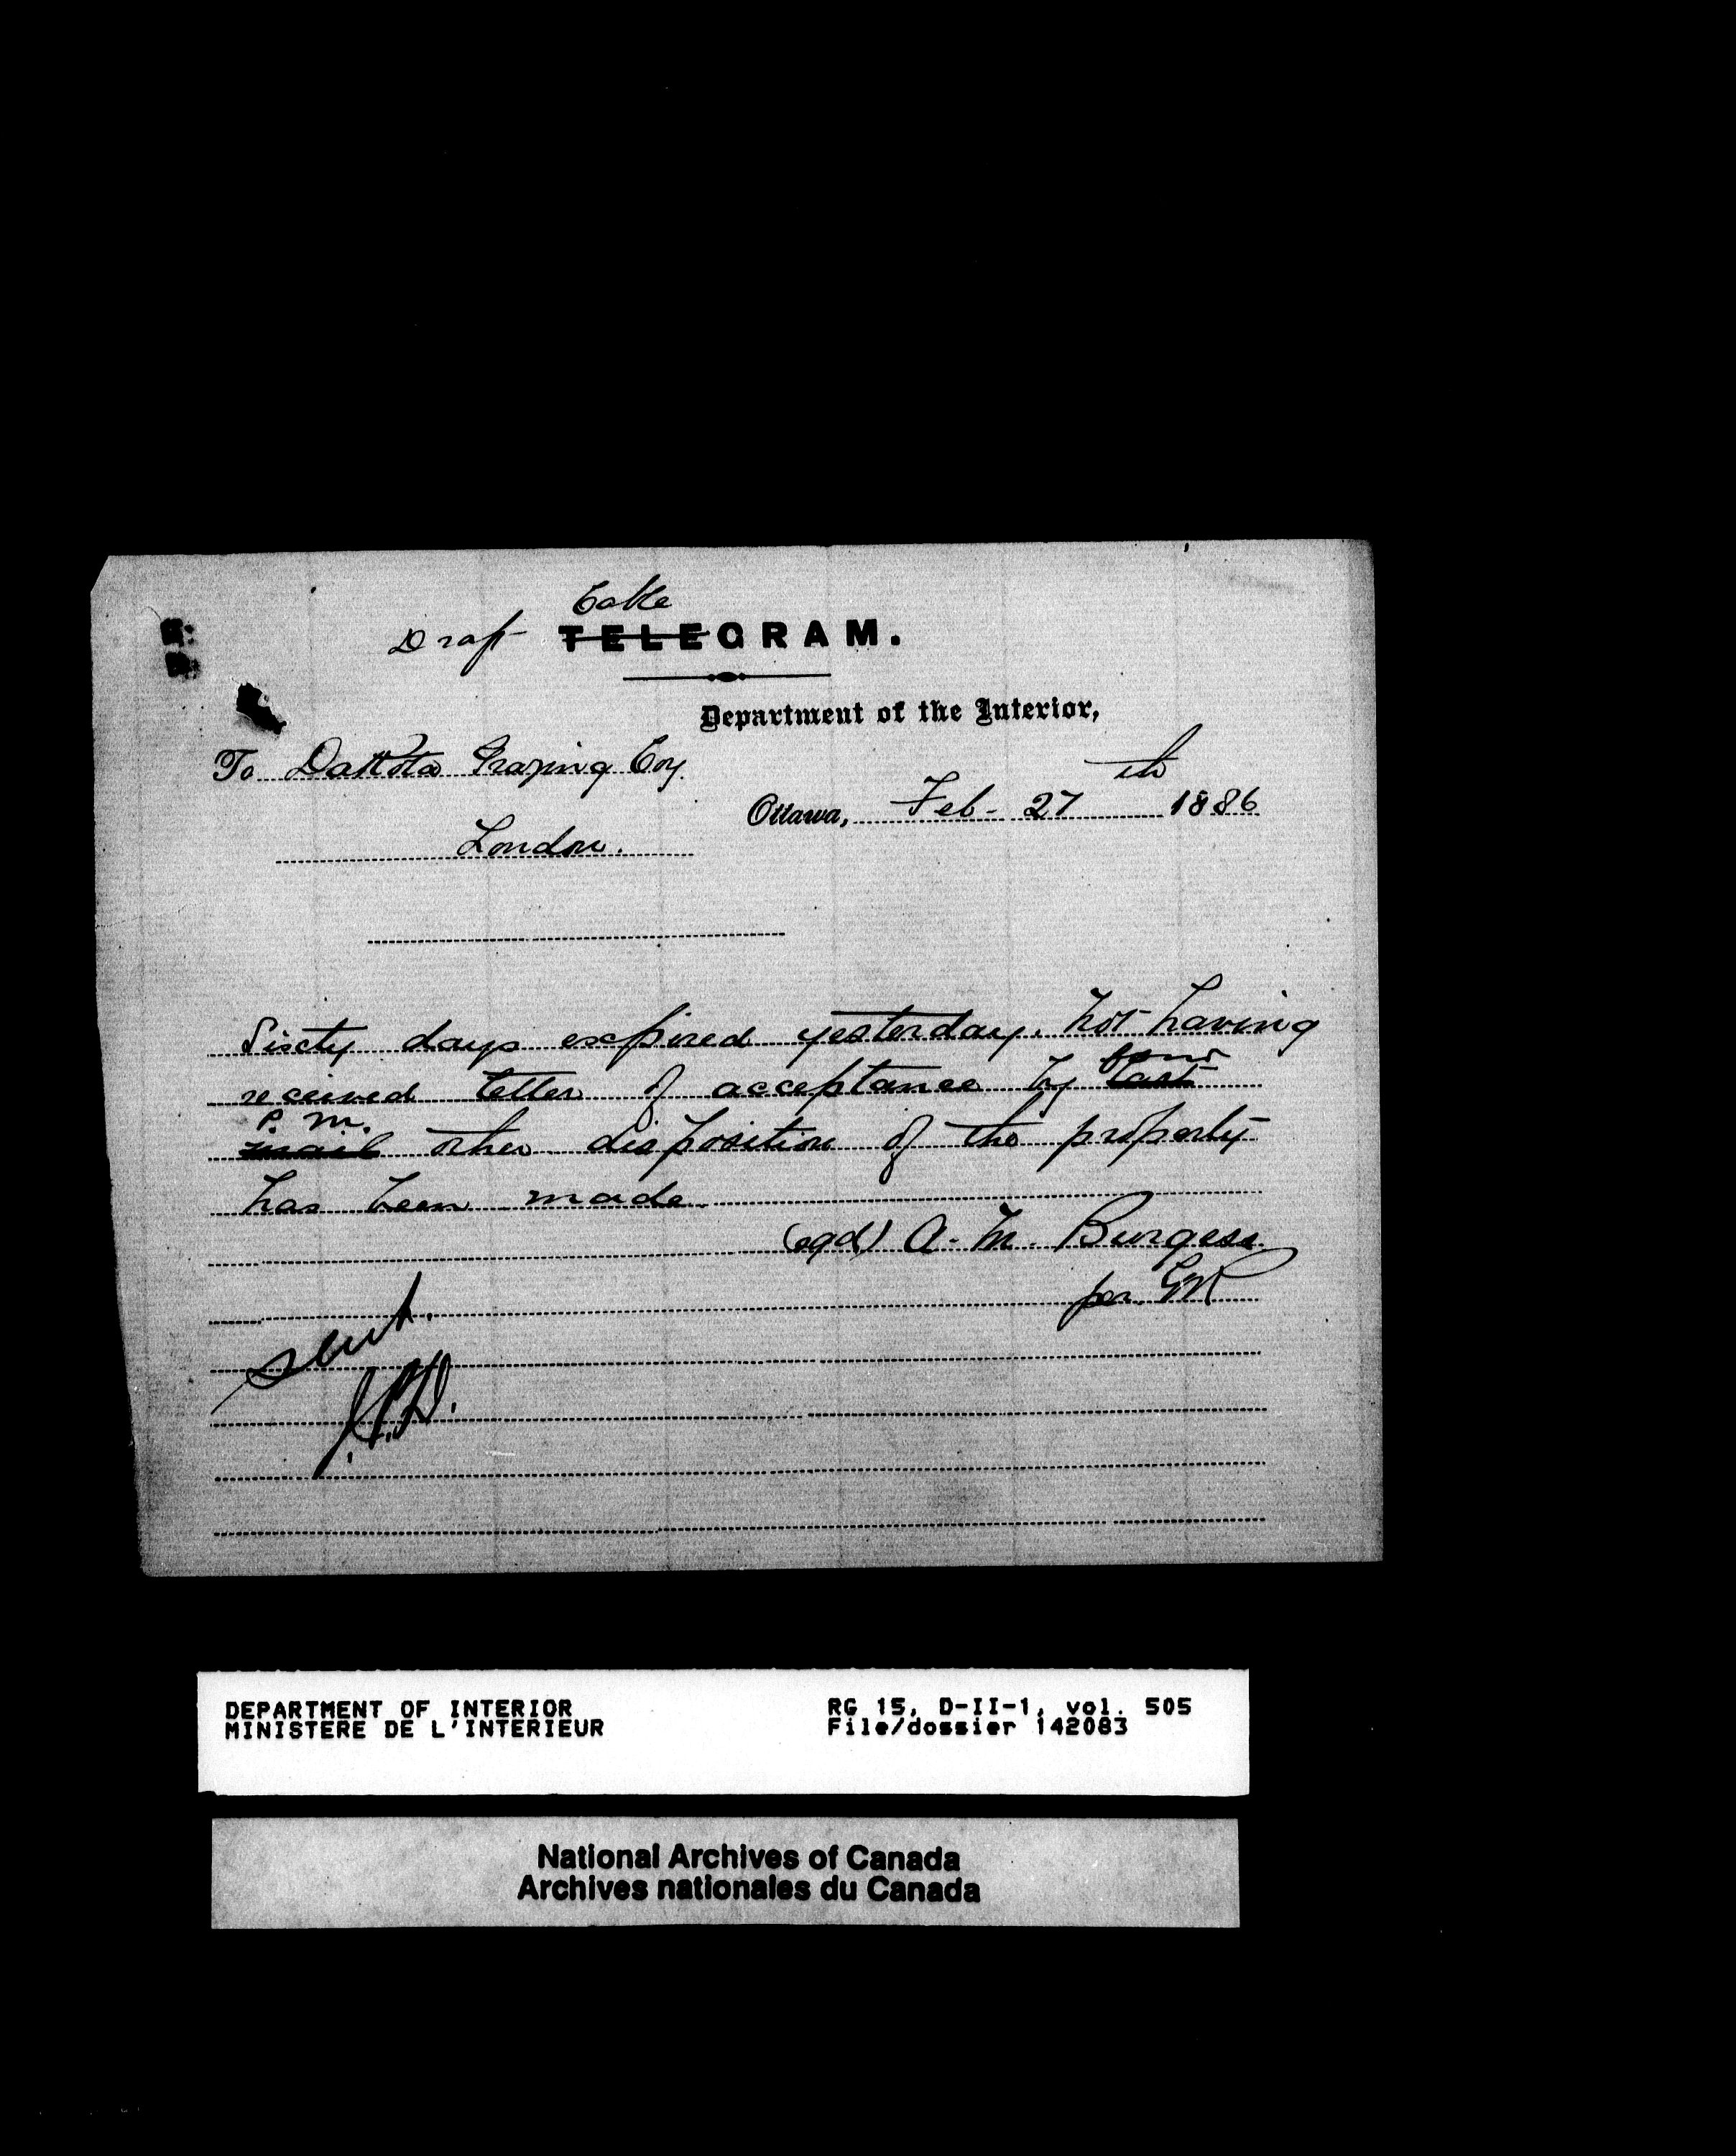 Cable
Draft TELEGRAM.
Department of the Interior,
To Dakota Grazing Coy.
Ottawa, Feb - 27th 1886
London.
Sixty days expired yesterday. Not having
received letter of acceptance by four
last
P. M.
mail other disposition of the property
has been made
(sgd) A. M. Burgess
per
sent.
DEPARTMENT OF INTERIOR RG 15, D-II-1, vol. 505
MINISTERE DE L'INTERIEUR File/dossier 142083
National Archives of Canada
Archives nationales du Canada